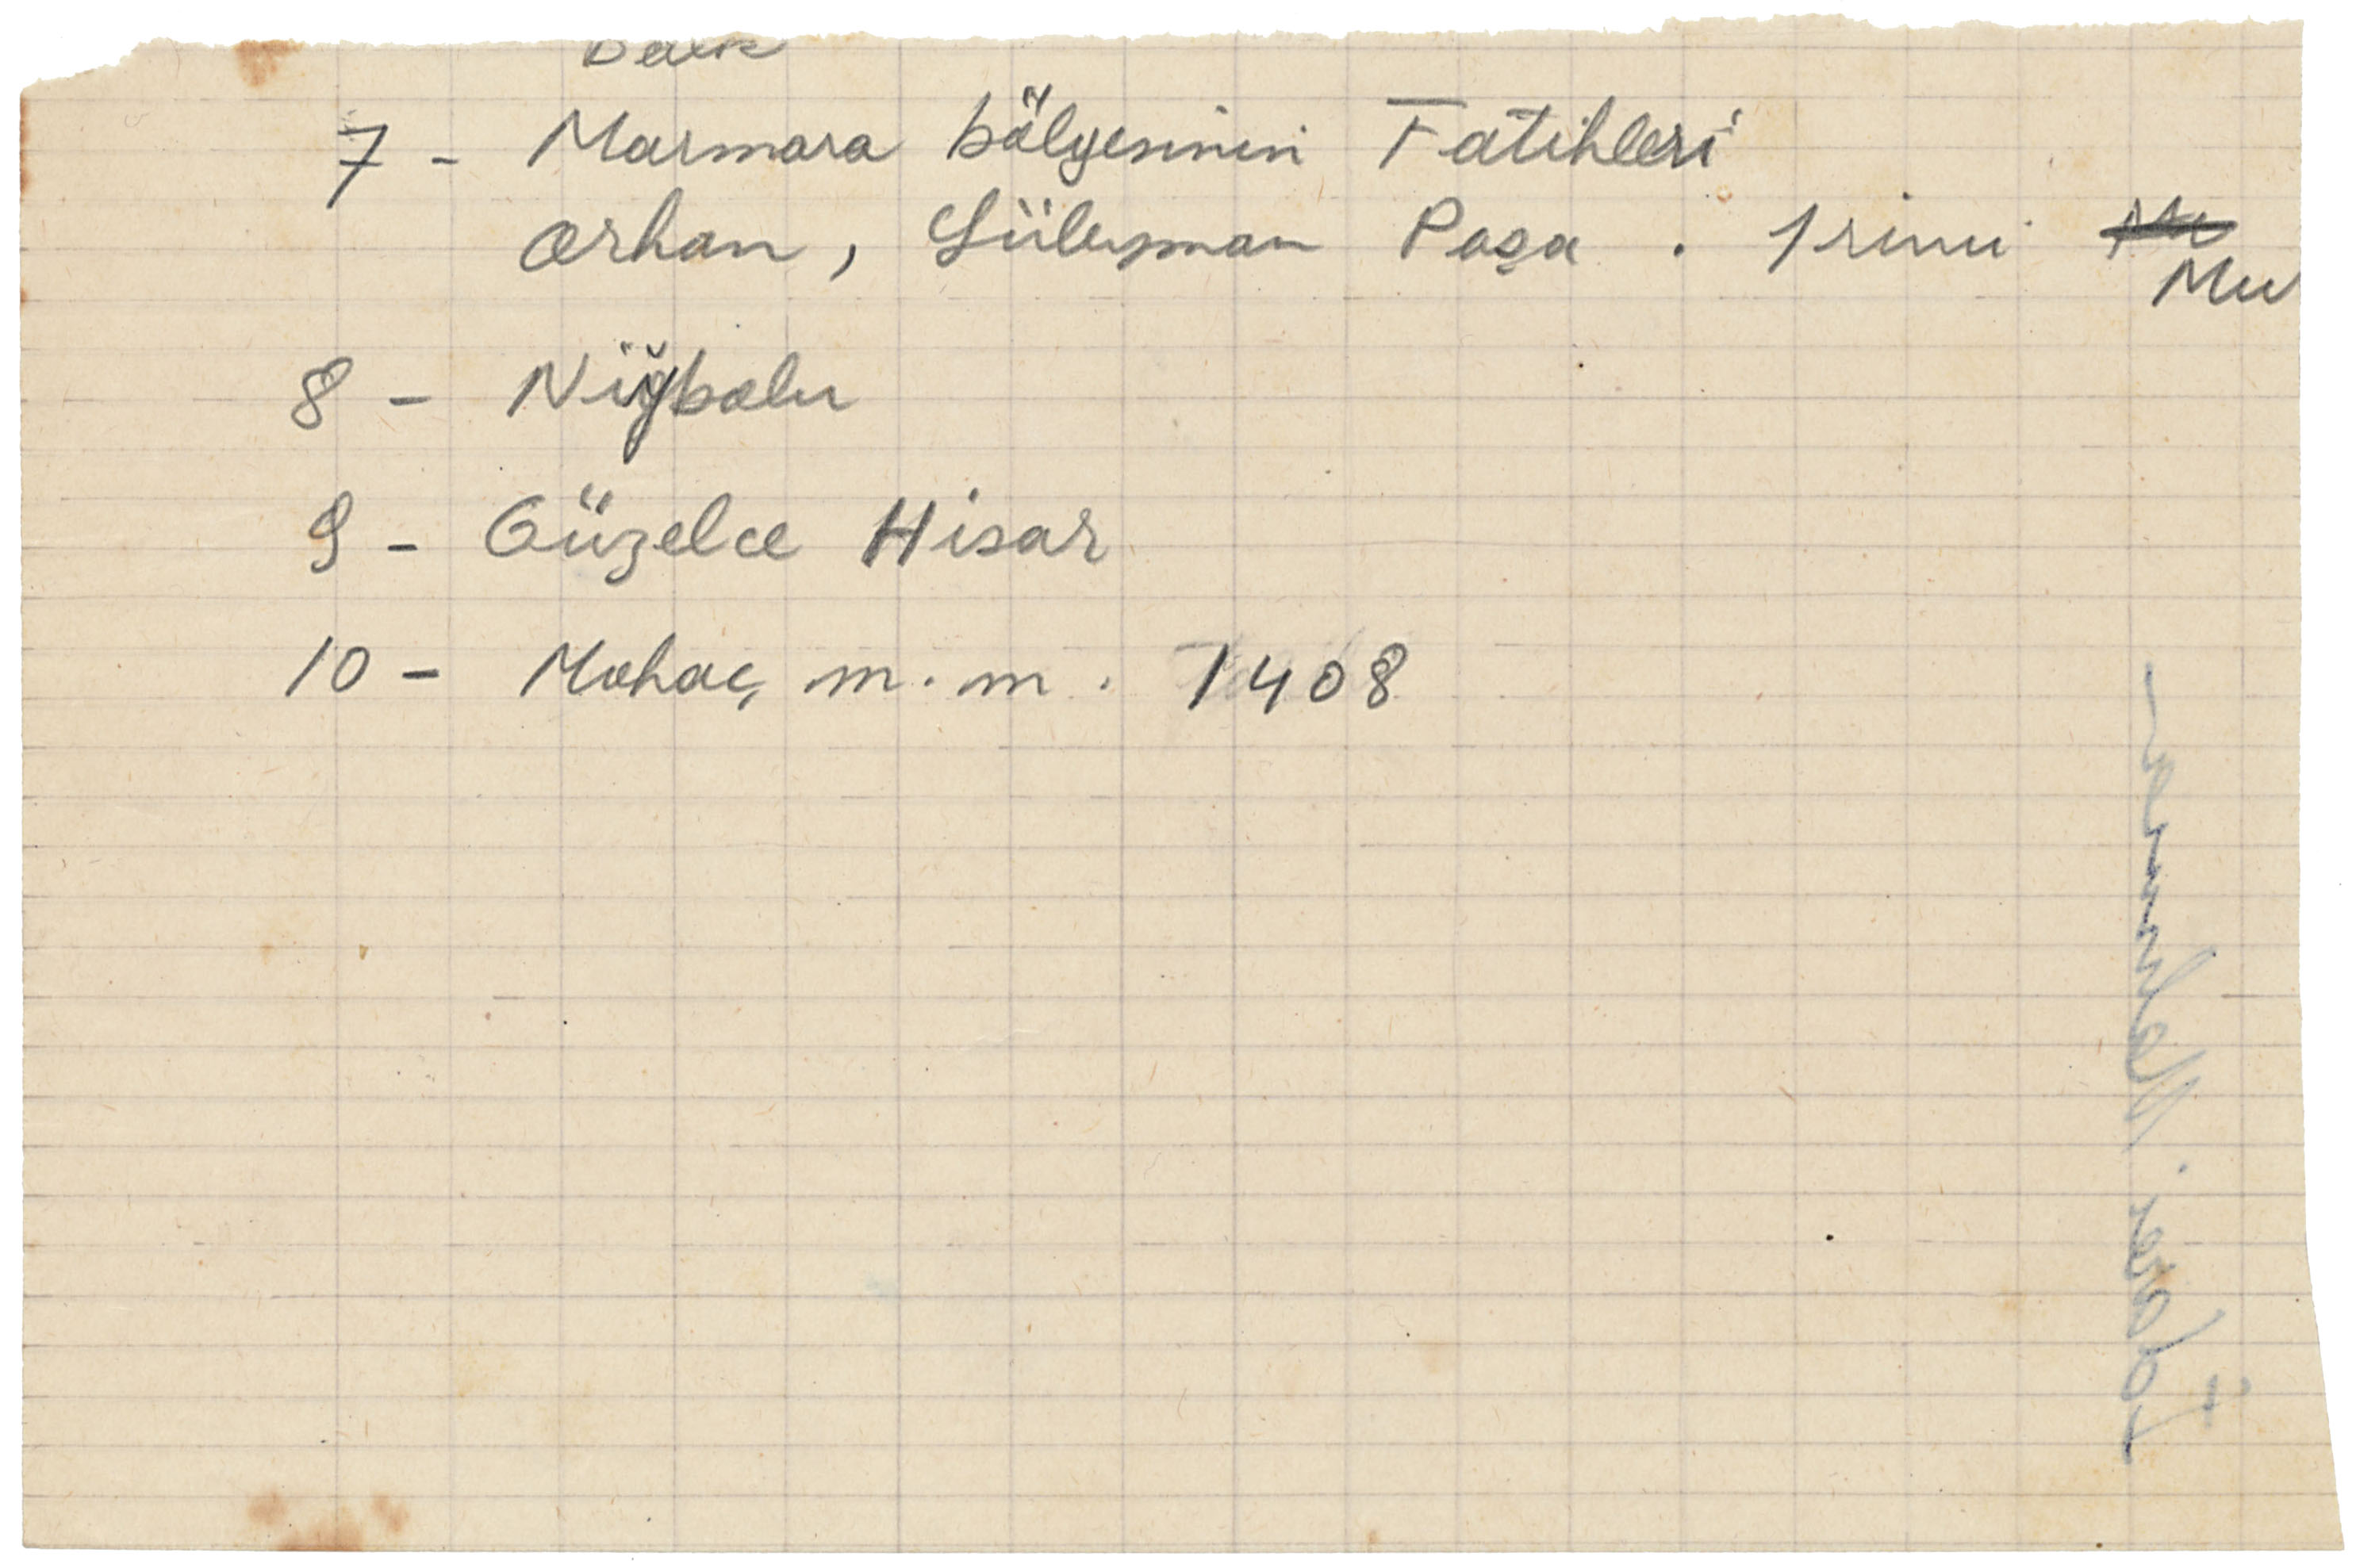 7 - Marmara bölgesinin Fatihleri
Orhan, Süleyman Paşa . 1rinci
Mu
8 - Niğbolu
9 - Güzelce Hisar
10 - Mohaç m.m. 1408